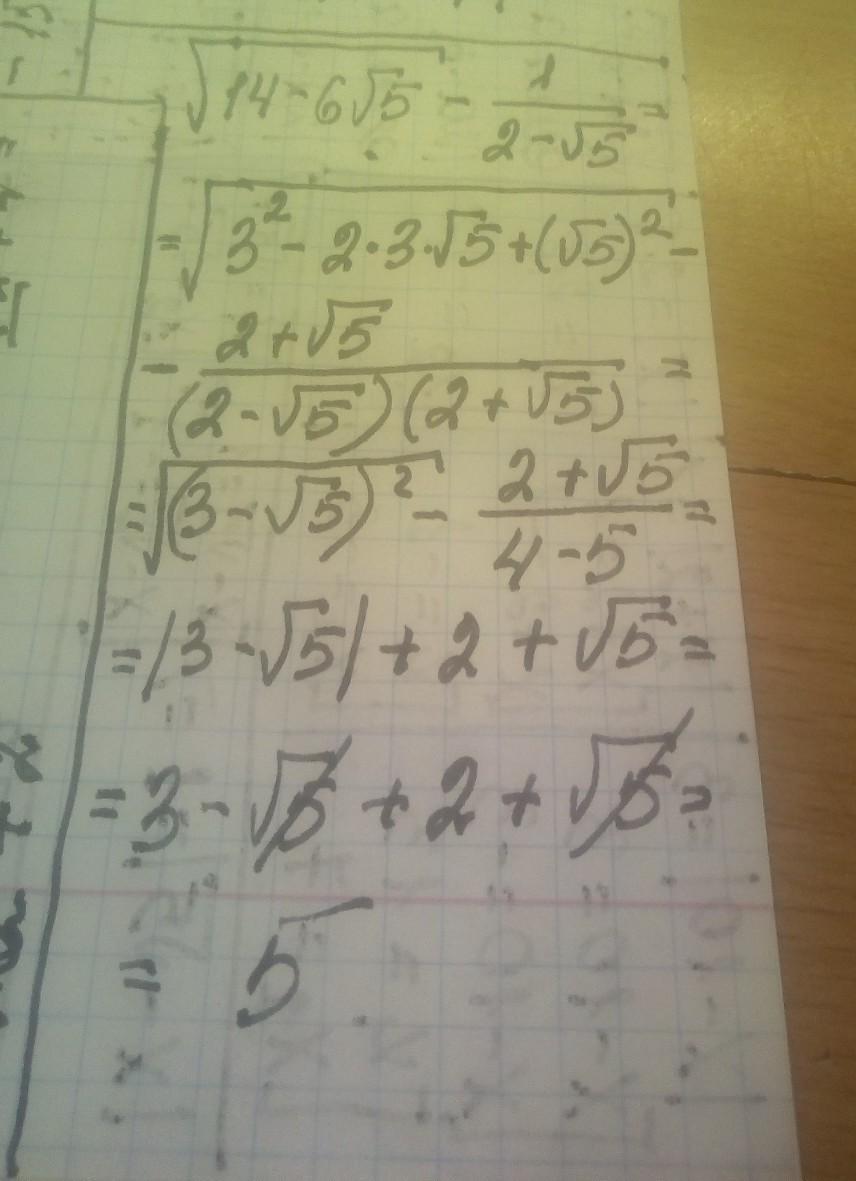 √(14-6√5) - 1/(2-√5) =
= √(3² - 2·3·√5 + (√5)²) -
- (2+√5)/((2-√5)(2+√5)) =
= √((3-√5)²) - (2+√5)/(4-5) =
= |3-√5| + 2 + √5 =
= 3 - √5 + 2 + √5 =
= 5